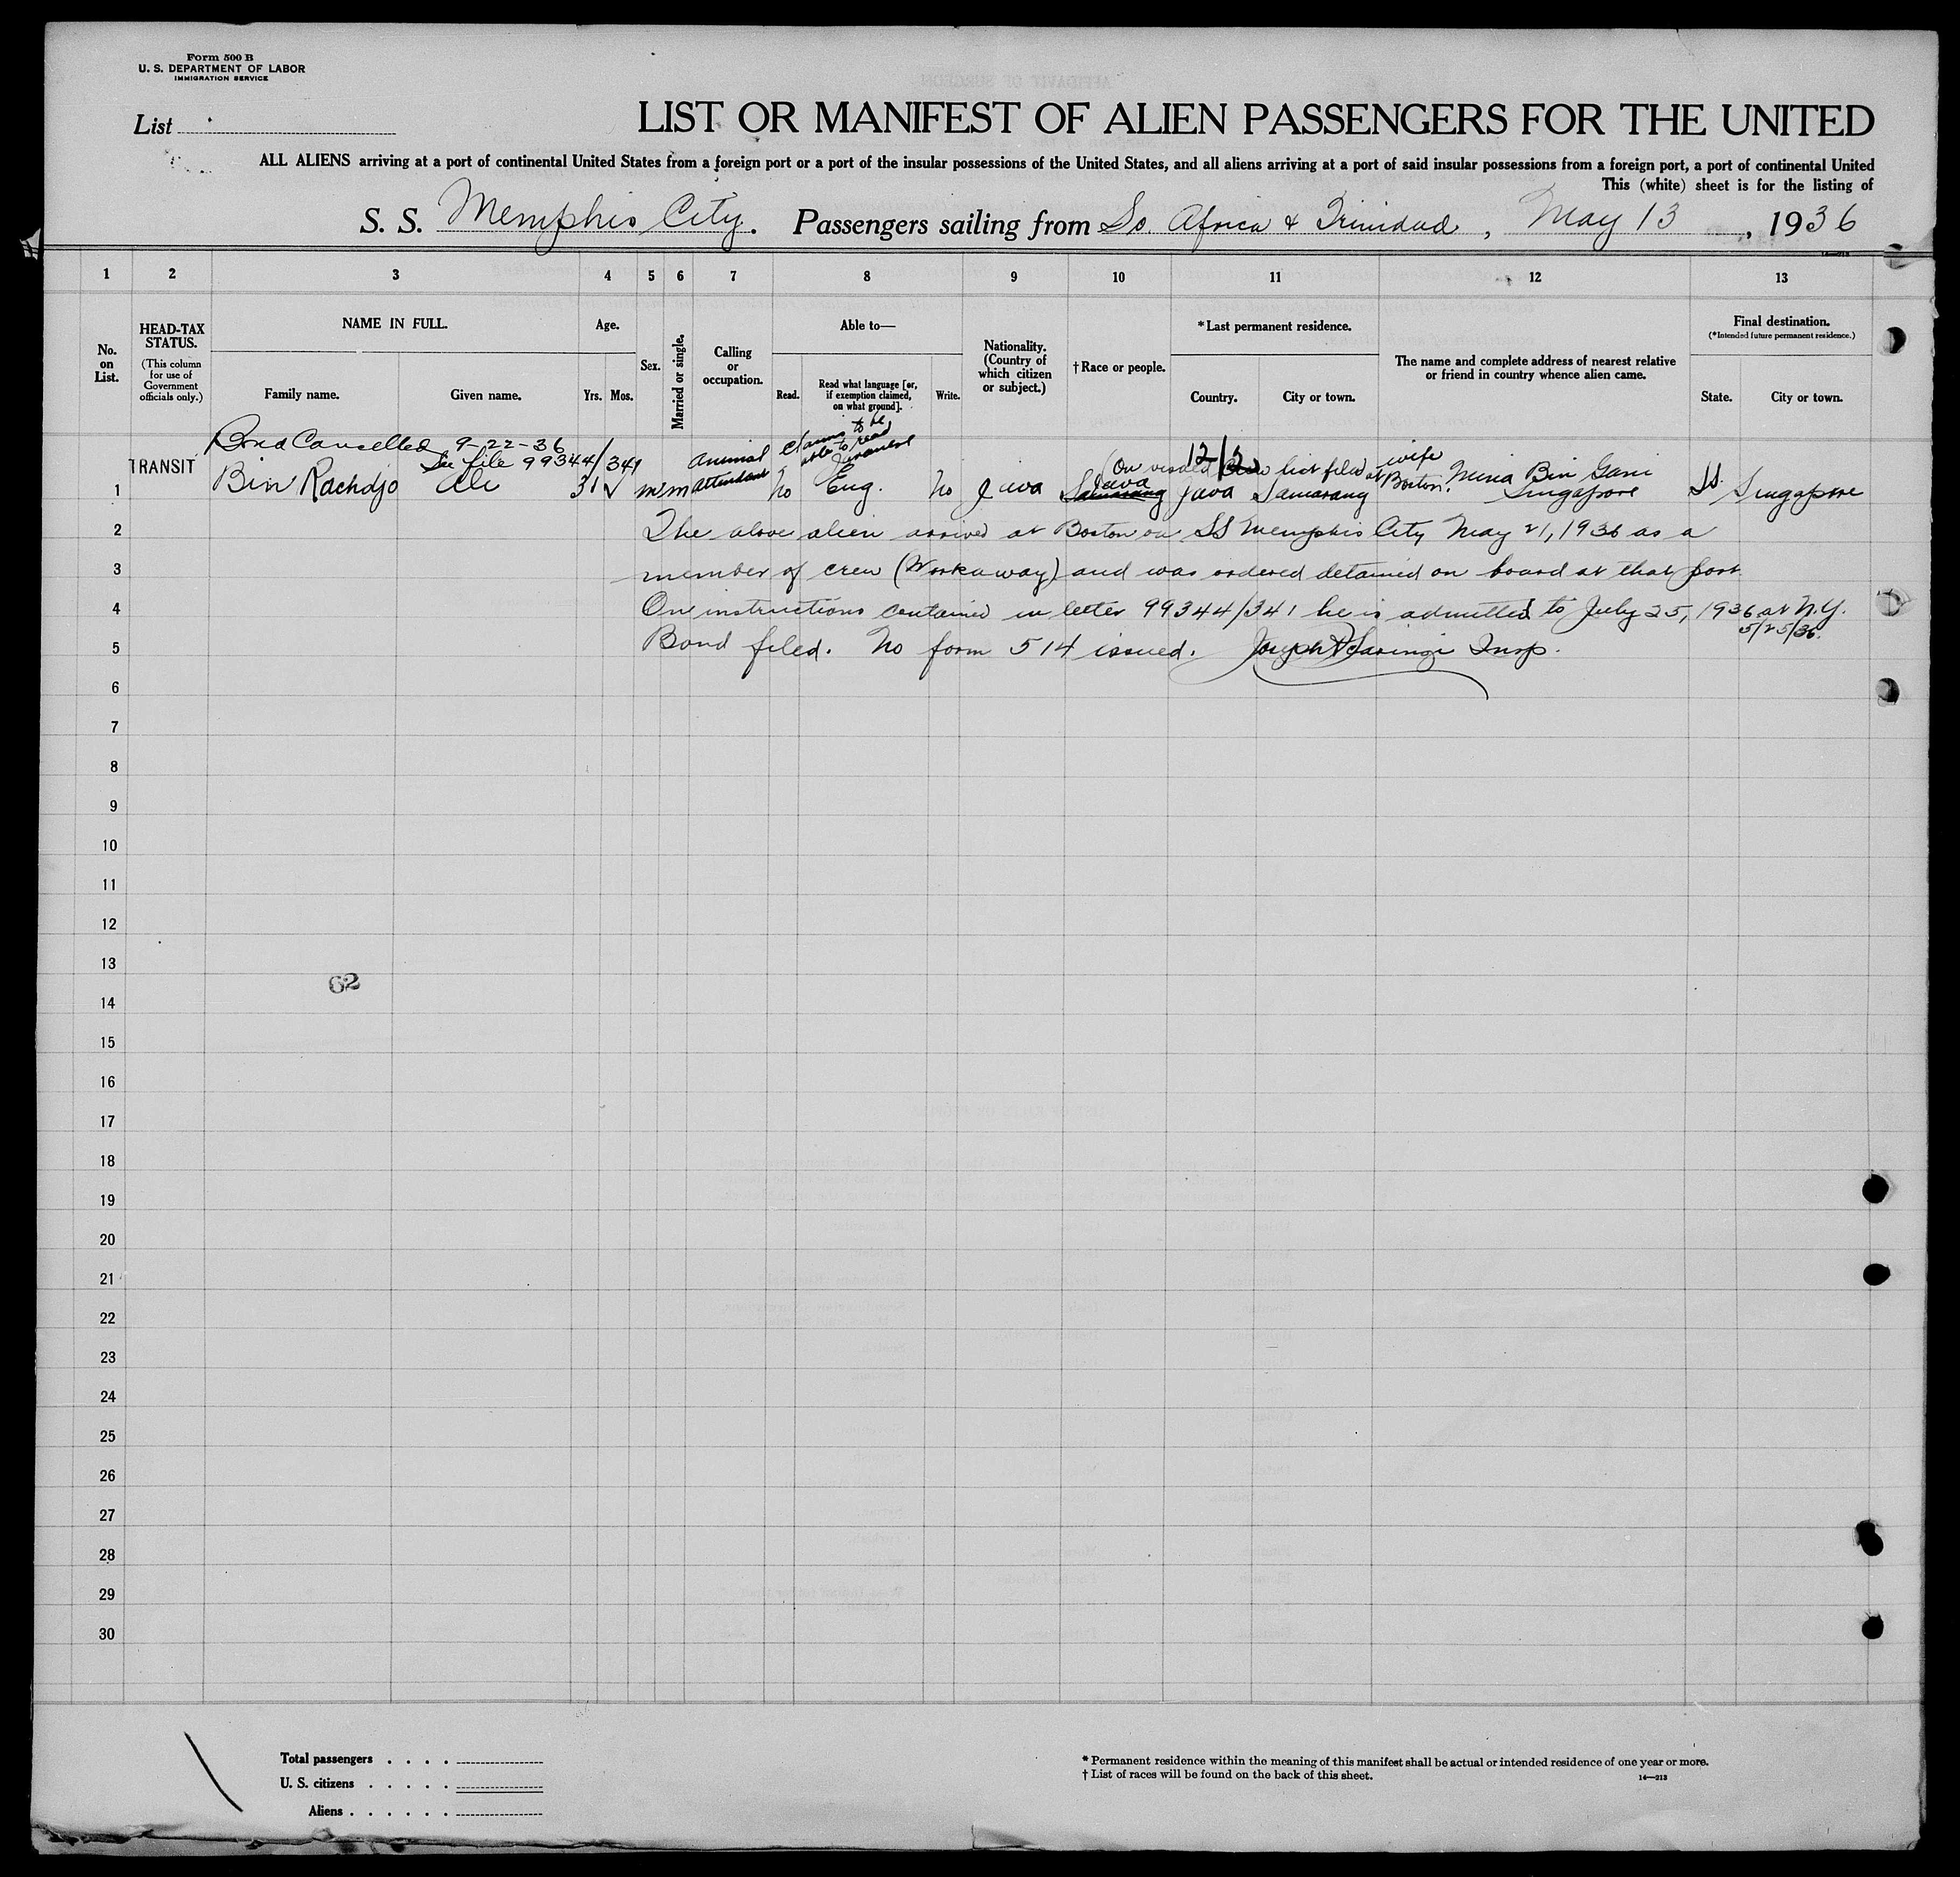 Form 500 B
U. S. DEPARTMENT OF LABOR
IMMIGRATION SERVICE
List
LIST OR MANIFEST OF ALIEN PASSENGERS FOR THE UNITED
ALL ALIENS arriving at a port of continental United States from a foreign port or a port of the insular possessions of the United States, and all aliens arriving at a port of said insular possessions from a foreign port, a port of continental United
This (white) sheet is for the listing of
S. S. Memphis City. Passengers sailing from So. Africa & Trinidad, May 13, 1936
1 2 3 4 5 6 7 8 9 10 11 12 13
No. on List.
HEAD-TAX STATUS.
(This column for use of Government officials only.)
NAME IN FULL.
Family name. Given name.
Age.
Yrs. Mos.
Sex.
Married or single.
Calling or occupation.
Able to—
Read. Read what language [or, if exemption claimed, on what ground]. Write.
Nationality. (Country of which citizen or subject.)
†Race or people.
*Last permanent residence.
Country. City or town.
The name and complete address of nearest relative or friend in country whence alien came.
Final destination.
(*Intended future permanent residence.)
State. City or town.
Bond Cancelled 9-22-36
See file 99344/341
claims to be
able to read
Animal
attendant
12/2
On visaed crew list filed at Boston.
wife
TRANSIT
1 Bin Rachdjo Ali 31 ✓ m m No Eng. No Java Samarang Java Java Samarang Mina Bin Gani Singapore SS. Singapore
2 The above alien arrived at Boston on SS Memphis City May 21, 1936 as a
3 member of crew (Workaway) and was ordered detained on board at that port.
4 On instructions contained in letter 99344/341 he is admitted to July 25, 1936 at N.Y.
5/25/36.
5 Bond filed. No form 514 issued. Joseph Insp.
6
7
8
9
10
11
12
13
62
14
15
16
17
18
19
20
21
22
23
24
25
26
27
28
29
30
Total passengers . . . .
U. S. citizens . . . . .
Aliens . . . . . .
* Permanent residence within the meaning of this manifest shall be actual or intended residence of one year or more.
† List of races will be found on the back of this sheet.
14—213